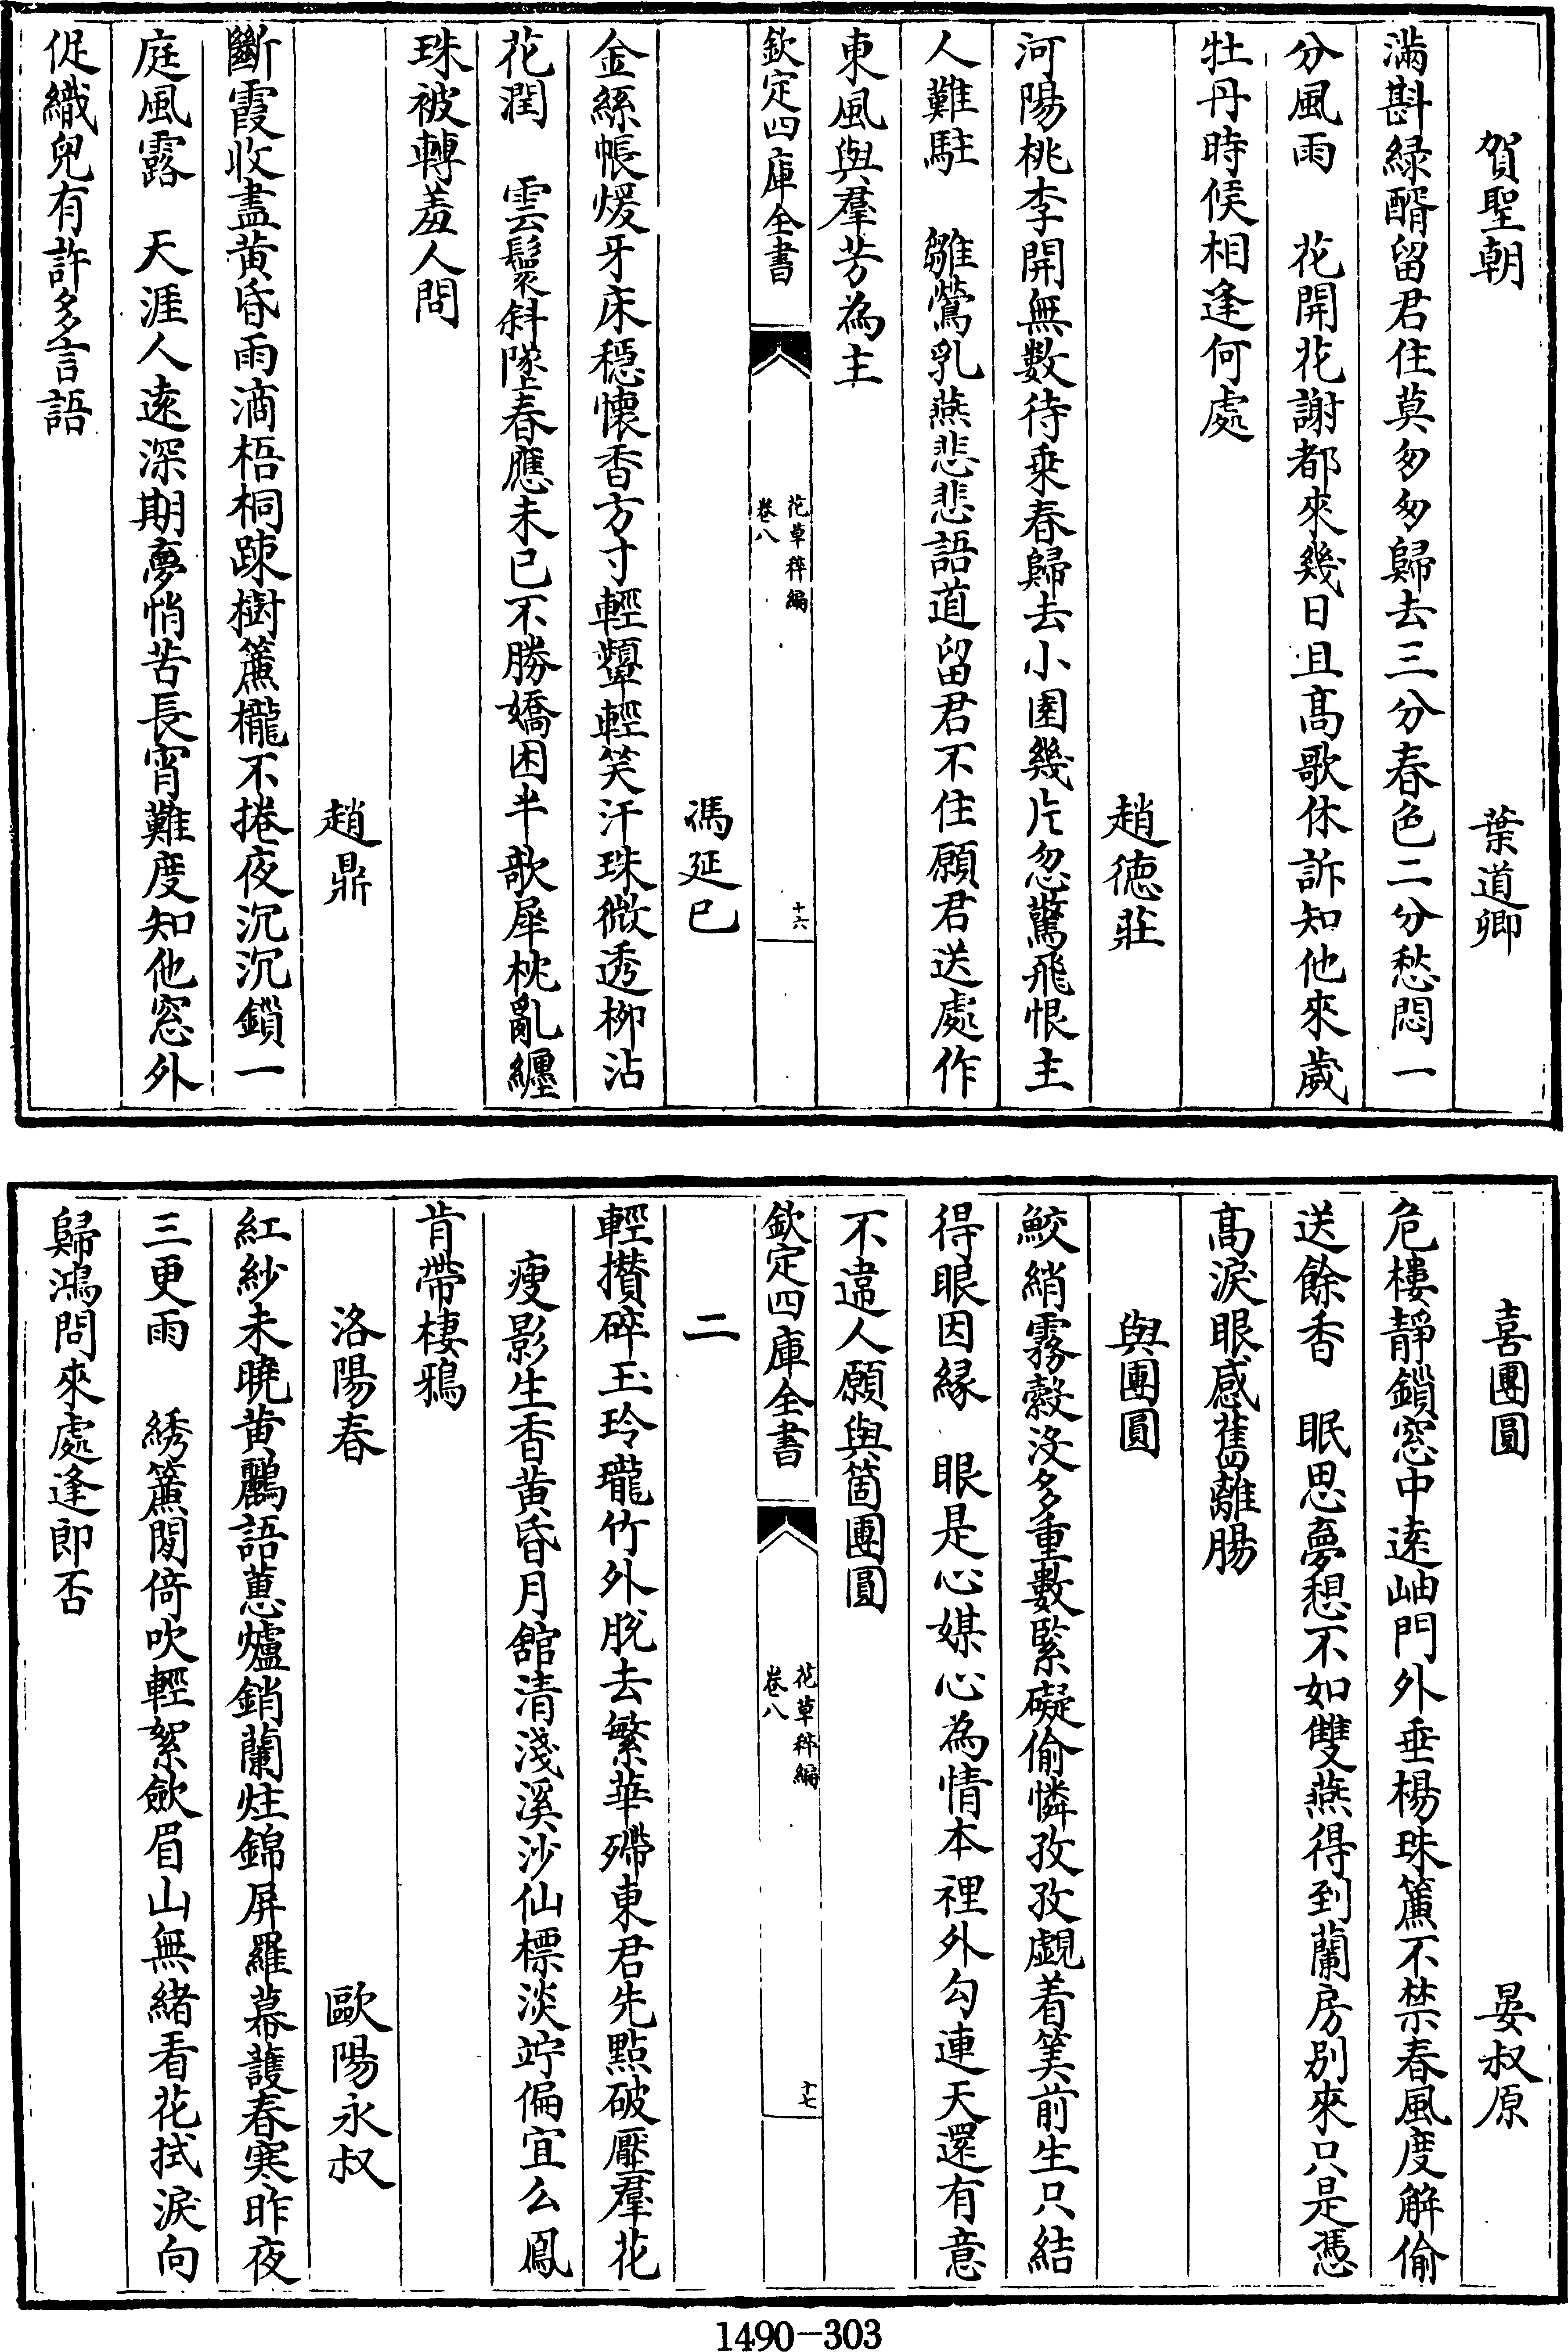 賀聖朝　葉道卿
滿斟緑醑留君住莫匆匆歸去三分春色二分愁悶一
分風雨　花開花謝都來幾日且髙歌休訴知他來歲
牡丹時候相逢何處
趙徳莊
河陽桃李開無數待乗春歸去小園幾片忽驚飛恨主
人難駐　雛鶯乳燕悲悲語道留君不住願君送處作
東風與羣芳為主
欽定四庫全書　花草稡編卷八　十六
馮延巳
金絲帳煖牙床穩懷香方寸輕顰輕笑汗珠微透柳沾
花潤　雲鬟斜墜春應未已不勝嬌困半欹犀枕亂纏
珠被轉羞人問
趙鼎
斷霞收盡黄昏雨滴梧桐疎樹簾櫳不捲夜沉沉鎖一
庭風露　天涯人遠深期夢悄苦長宵難度知他窓外
促織兒有許多言語
喜團圓　晏叔原
危樓靜鎖窓中遠岫門外垂楊珠簾不禁春風度解偷
送餘香　眠思夢想不如雙燕得到蘭房别來只是憑
髙淚眼感舊離腸
與團圓
鮫綃霧縠没多重數緊礙偷憐孜孜覷着筭前生只結
得眼因緣　眼是心媒心為情本裡外勾連天還有意
不違人願與箇團圓
欽定四庫全書　花草稡編卷八　十七
二
輕攅碎玉玲瓏竹外脱去繁華殢東君先點破壓羣花
瘦影生香黄昏月舘清淺溪沙仙標淡竚偏宜么鳳
肯帶棲鴉
洛陽春　歐陽永叔
紅紗未曉黄鸝語蕙爐銷蘭炷錦屏羅幕護春寒昨夜
三更雨　綉簾閒倚吹輕絮歛眉山無緒看花拭淚向
歸鴻問來處逢郎否
1490-303